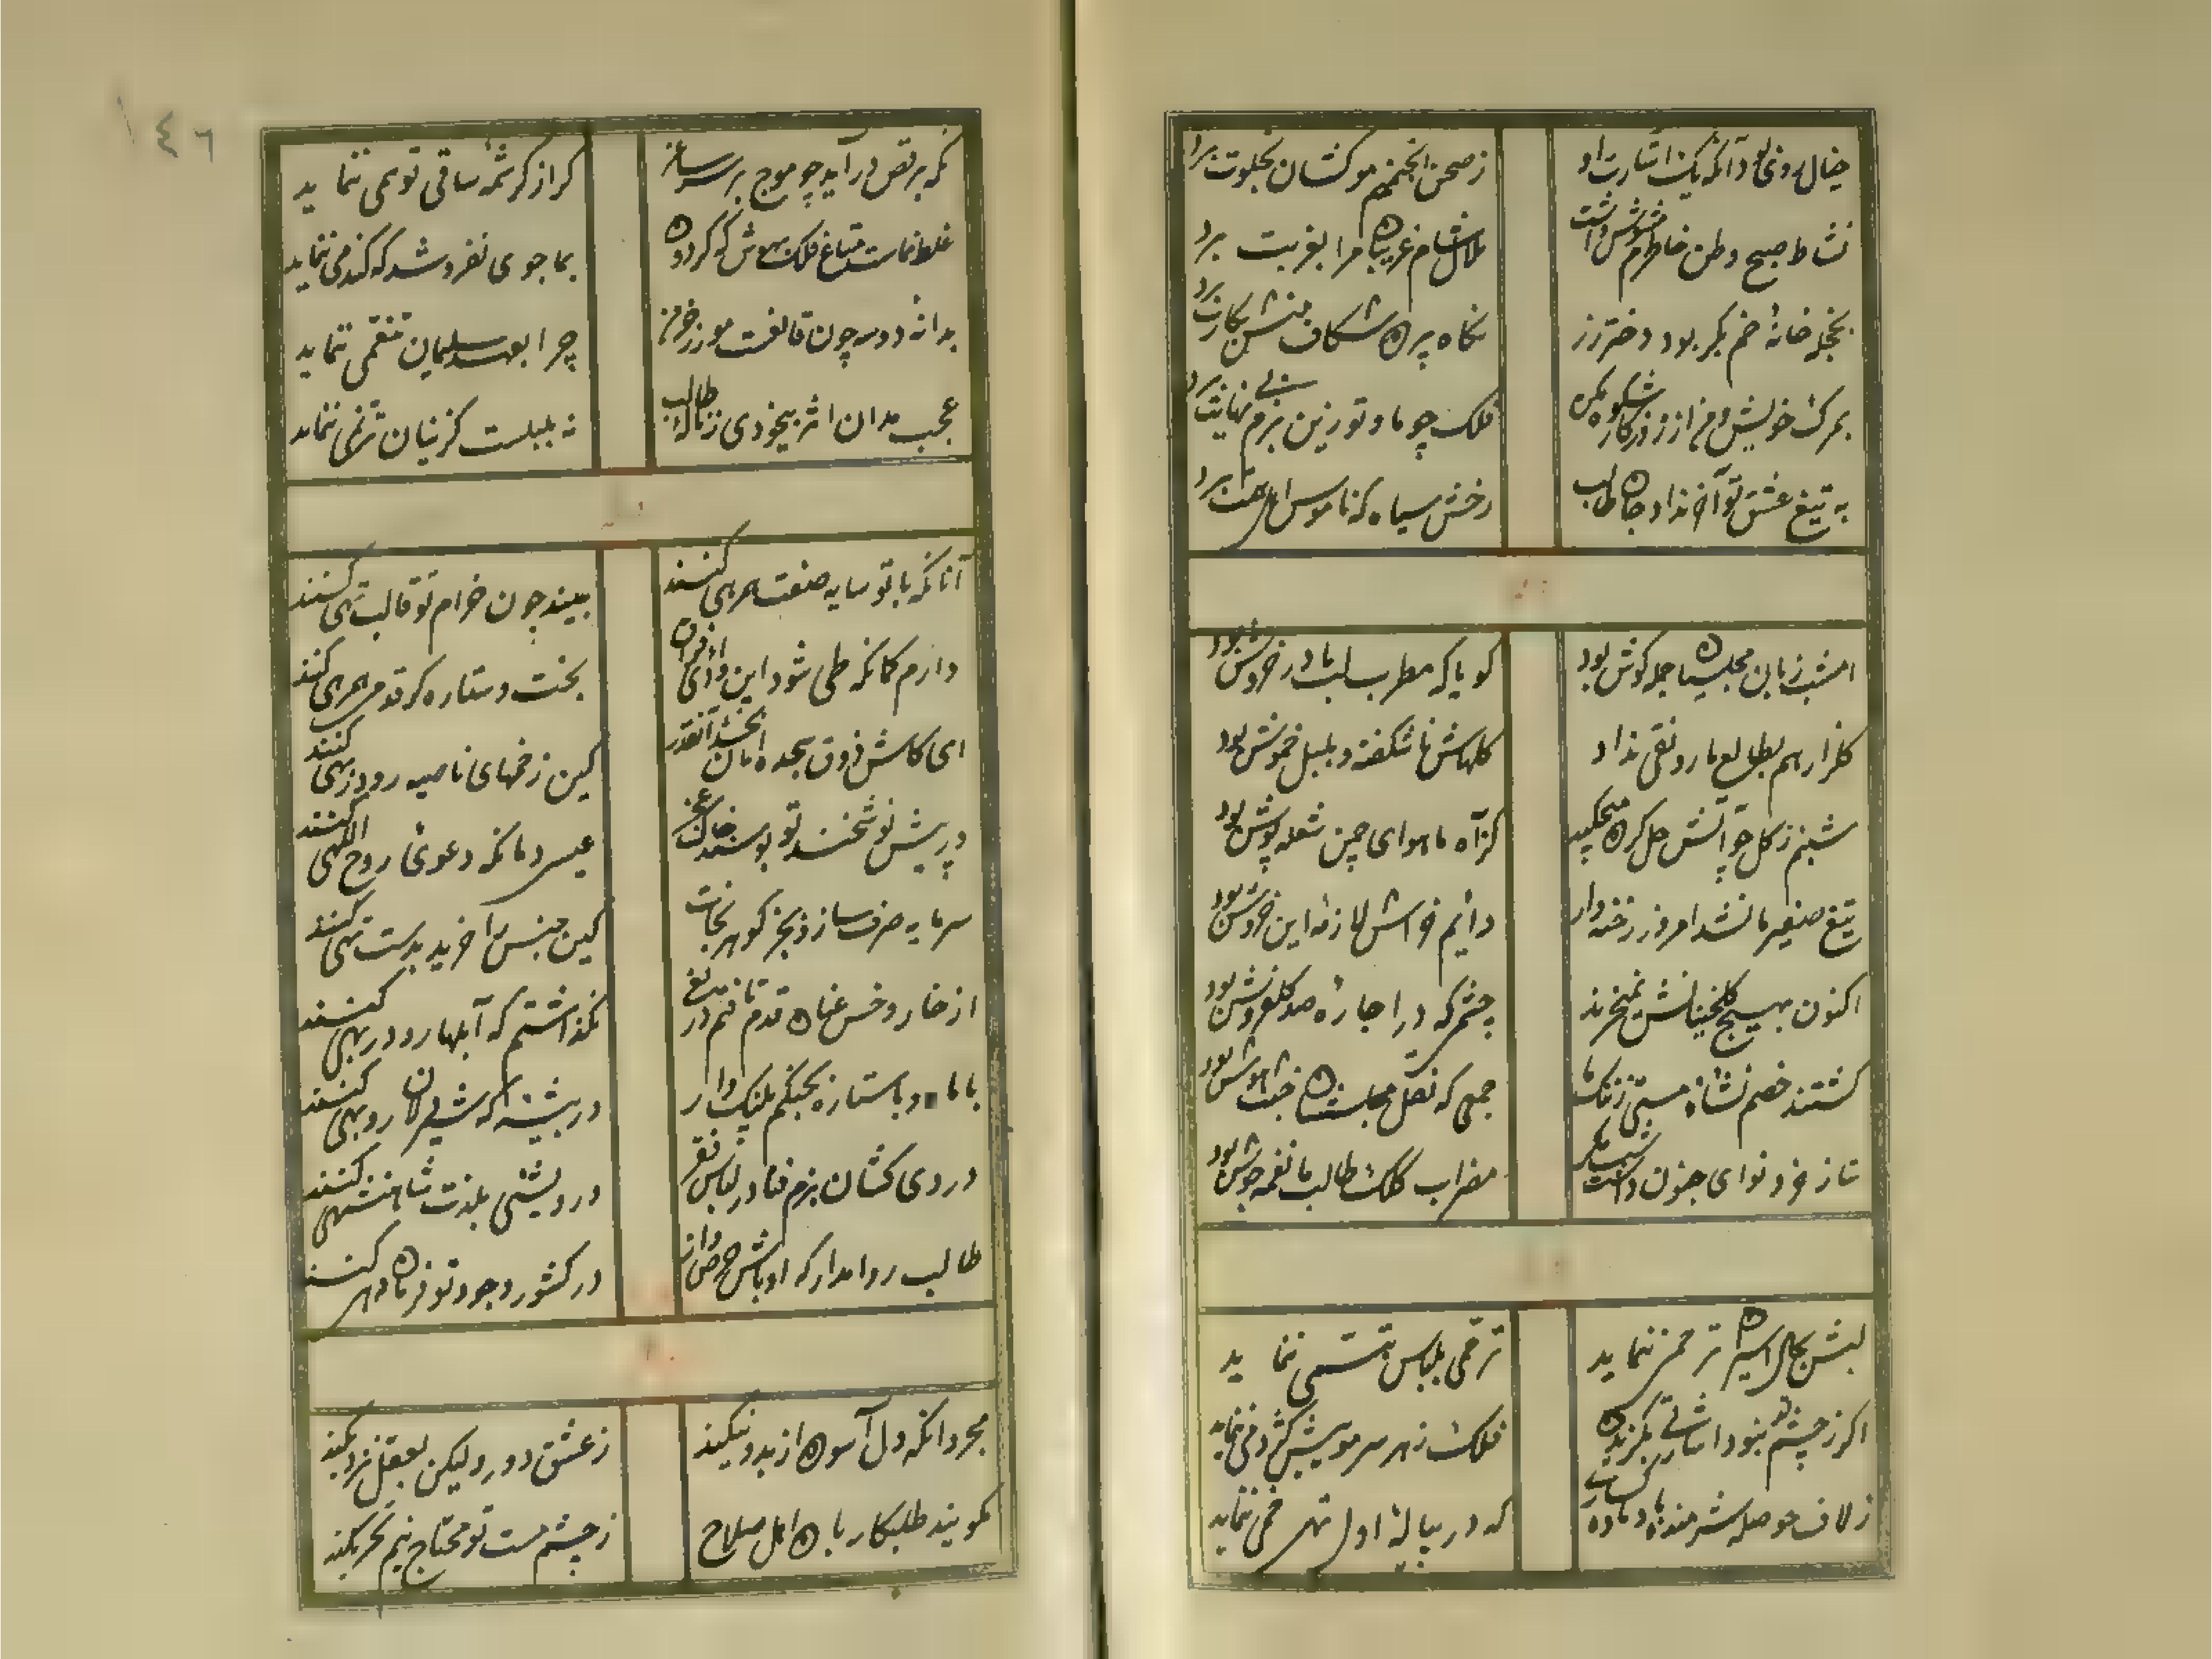 خیال روی تو آنکه بیک اشارت او
ز صحن انجمنم موکشان بخلوت برد
نشاط صبح وطن خاطرم مشوش داشت
ملال شام غریبان مرا بغربت برد
بحجله خانهٔ خم بکر بود دختر رز
نکاه پرده شکاف بکارت برد
بمرک خویش
فلک چو ما و تو زین بزم بی نهایت برد
به تیغ عشق تو آخر نداد جان طالب
رخش سیاه که ناموس اهل همت برد
امشب زبان مجلسیان جمله کوش بود
کویا که مطرب لب ما در خروش بود
کلزار هم بطالع ما رونقی نداد
کلهاش ناشکفته و بلبل خموش بود
شبنم ز کل چو آتش حل کرده میچکید
کز آه ما هوای چمن شعله پوش بود
تیغ صفیر ما نشد امروز رخنه دار
دایم خراش لازمهٔ این خروش بود
اکنون بهیچ کلخنیانش نمیخرند
چشمم که در اجارهٔ صد کلفروش بود
کشتند خصم نشاهٔ مستی ز ننک ما
جمعی که نقل مجلسشان خبث هوش بود
تا زخم و نوای جنون داشت
مضراب کلک طالب ما نغمه جوش بود
لبش بحال اسیران ترحمی ننماید
ترحمی بلباس تبسمی ننماید
اکر ز چشم نبود اشارتی نکزیده
فلک ز هر سر مویش کژدمی ننماید
ز لاف حوصله شرمنده باد ساده کسانت
که در پیالهٔ اول تهی خمی ننماید
که برقص درآید چو موج بر سر ساغر
کر از کرشمه ساقی توهمی ننماید
غلط نماست متاع فلک بهوش که کردون
بما جوی نفروشد که کندمی ننماید
بدانه دو سه چون قانعست مور ز خرمن
چرا بعهد سلیمان تنعمی ننماید
عجب مدان اثر بیخودی ز نالهٔ طالب
نه بلبلست کزینسان ترنمی ننماید
آنانکه با تو سایه صفت همرهی کنند
بینند چون خرام تو قالب تهی کنند
دارم کمان که طی شود این وادی فراق
بخت و ستاره کر قدمی همرهی کنند
ای کاش ذوق سجده امان بخشد آنقدر
کین زخمهای ناصیه رو در بهی کنند
در پیش نوشخند تو بوسند خاک عجز
عیسی دمان که دعوی روح اللهی کنند
سرمایه صرف ساز و بخر کوهر نجات
کین جنس را خرید بدست تهی کنند
از خار و خس عنان قدم تافتم دریغ
نکذاشتم که آبلها رو در بهی کنند
با ما دو باستازه بجنکم پلنک وار
در بیشهٔ که شیردلان روبهی کنند
دردی کشان بزم فنا در لباس فقر
درویشی بلذت شاهنشهی کنند
طالب روا مدار که اوباش حرص و آز
در کشور وجود تو فرماندهی کنند
مجردان که دل آسوده از بد و نیکند
ز عشق دور و لیکن بعقل نزدیکند
بکویند طلبکار باده اهل صلاح
ز چشم مست تو محتاج نیم تحریکند
١٤٦